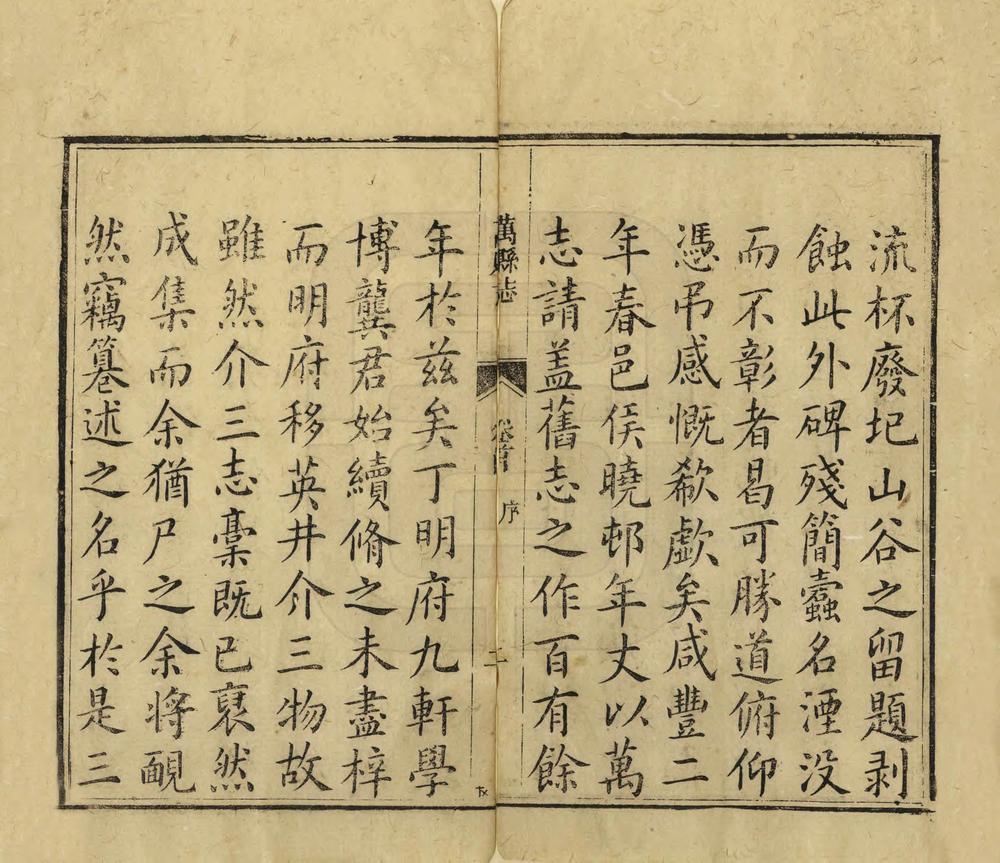 流杯廢圯山谷之留題剥
蝕此外碑殘簡蠹名湮没
而不彰者曷可勝道俯仰
憑吊感慨欷歔矣咸豐二
年春邑侯曉邨年丈以萬
志請盖舊志之作百有餘
萬縣志
卷首
序
二
年於兹矣丁明府九軒學
博龔君始續脩之未盡梓
而明府移英井介三物故
雖然介三志稾既已裒然
成集而余猶尸之余將靦
然竊篹述之名乎於是三